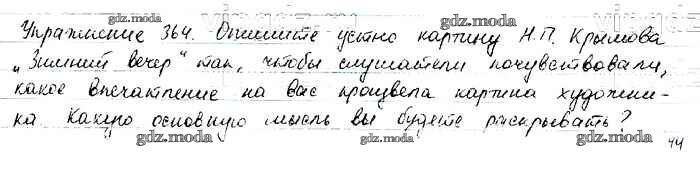 gdz.moda gdz.moda
Упражнение 364. Опишите устно картину Н.П. Крымова
„Зимний вечер" так, чтобы слушатели почувствовали,
gdz.moda gdz.moda gdz.moda
какое впечатление на вас произвела картина художни-
gdz.moda gdz.moda
ка. Какую основную мысль вы будете раскрывать?
gdz.moda gdz.moda gdz.moda
44